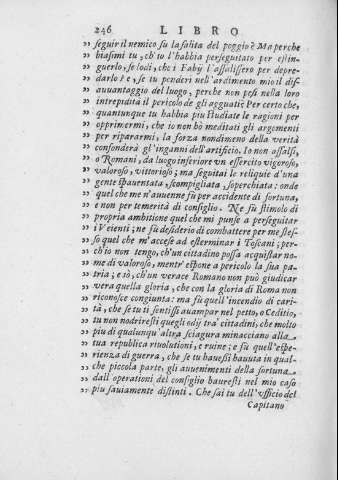 246 LIBRO
” seguir il nemico su la salita del poggio? Ma perche
” biasimi tu, ch'io l'habbia perseguitato per estin-
” guerlo, se lodi, che i Fabij l'assalissero per depre-
” darlo? e, se tu ponderi nell'ardimento mio il dis-
” auuantaggio del luogo, perche non pesi nella loro
” intrepidità il pericolo de gli agguati? Per certo che,
” quantunque tu habbia piu studiate le ragioni per
” opprimermi, che io non hò meditati gli argomenti
” per ripararmi, la forza nondimeno della verità
” confonderà gl'inganni dell'artificio. Io non assalsi,
” o Romani, da luogo inferiore vn essercito vigoroso,
” valoroso, vittorioso; ma seguitai le reliquie d'una
” gente spauentata, scompigliata, soperchiata: onde
” quel che me n'auuenne fù per accidente di fortuna,
” e non per temerità di consiglio. Ne fù stimolo di
” propria ambitione quel che mi punse a perseguitar
” i Veienti; ne fù desiderio di combattere per me stes-
” so quel che m'accese ad esterminar i Toscani; per-
” ch'io non tengo, ch'un cittadino possa acquistar no-
” me di valoroso, mentr'espone a pericolo la sua pa-
” tria; e sò, ch'un verace Romano non può giudicar
” vera quella gloria, che con la gloria di Roma non
” riconosce congiunta: ma fù quell'incendio di cari-
” tà, che se tu ti sentissi auampar nel petto, o Ceditio,
” tu non nodriresti quegli odij tra' cittadini, che molto
” piu di qualunqu'altra sciagura minacciano alla
” tua republica riuolutioni, e ruine; e fù quell'espe-
” rienza di guerra, che se tu hauessi hauuta in qual-
” che piccola parte, gli auuenimenti della fortuna
” dall'operationi del consiglio hauresti nel mio caso
” piu sauiamente distinti. Che sai tu dell'vfficio del
Capitano